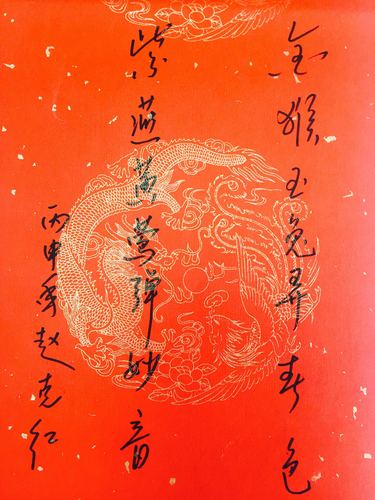 金猴玉兔弄春色
紫燕黄莺弹妙音
丙申年赵克红